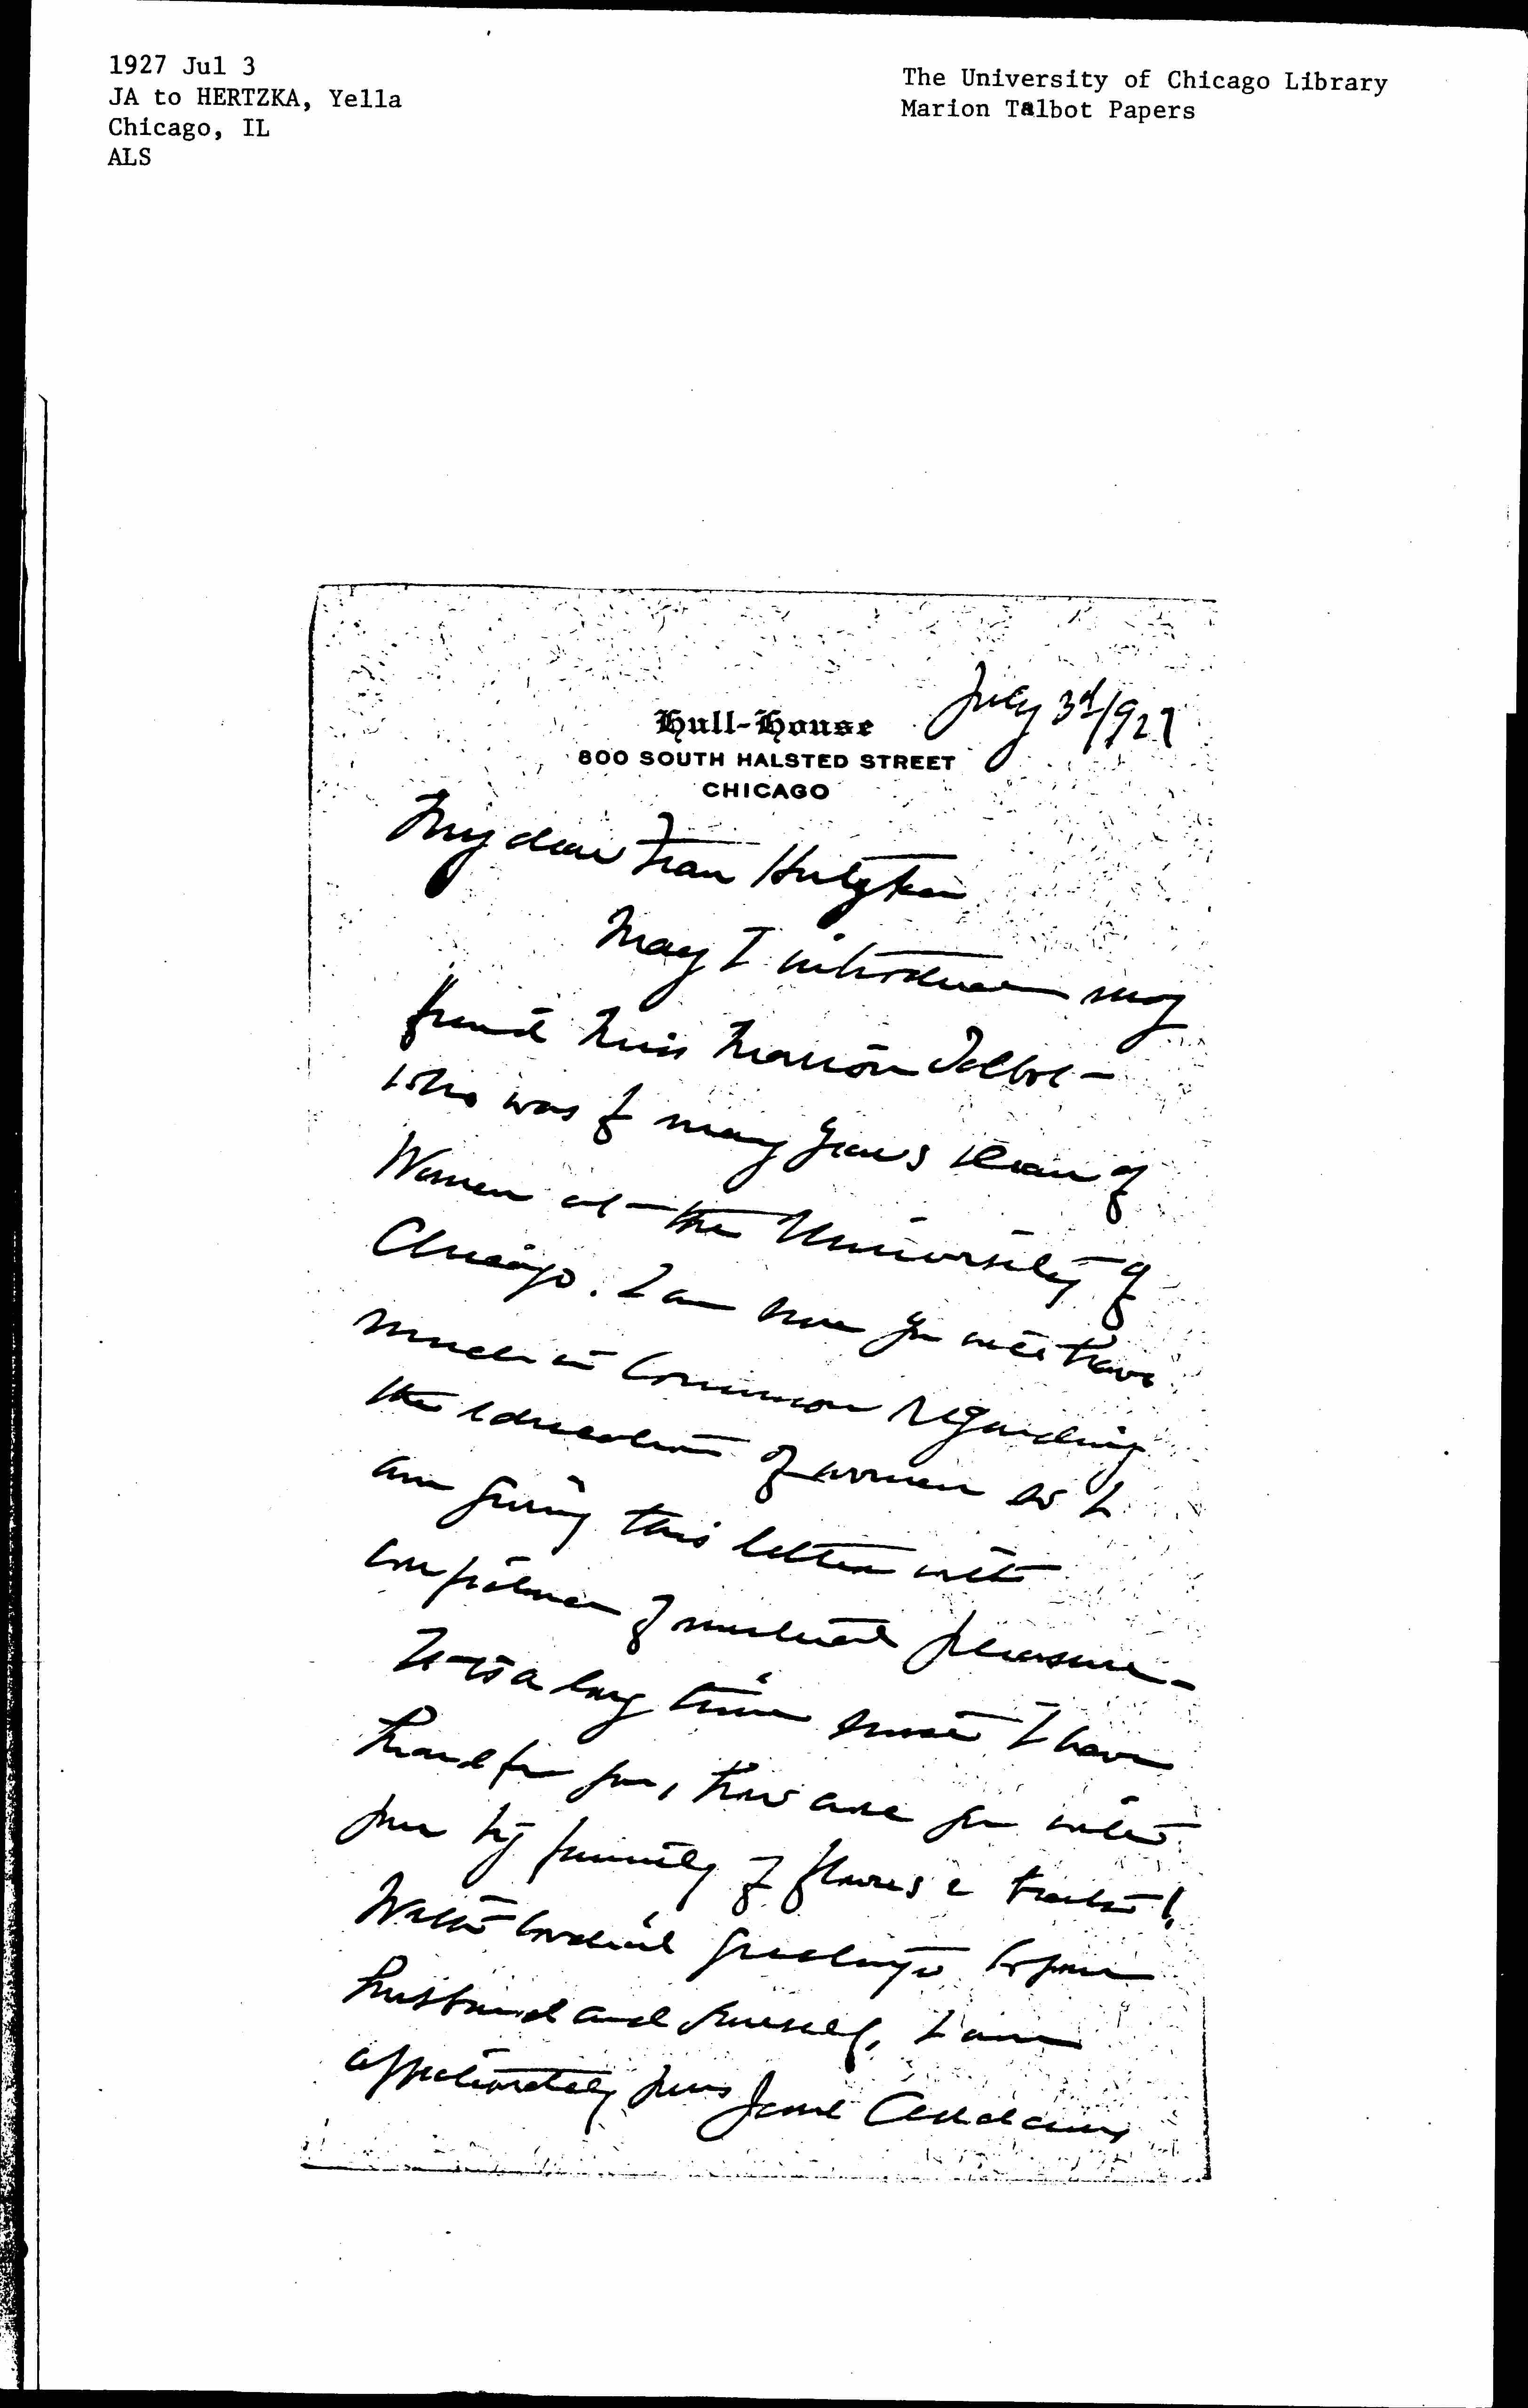 1927 Jul 3
JA to HERTZKA, Yella
Chicago, IL
ALS
The University of Chicago Library
Marion Talbot Papers
July 3d/927
Hull-House
800 SOUTH HALSTED STREET
CHICAGO
My dear Frau Hertzka
May I introduce my
friend Miss Marion Talbot
who was for many years Dean of
Women at the University of
Chicago. I am sure you will have
much in common regarding
the education of women so I
am giving this letter with
confidence of mutual pleasure.
It is a long time since I have
heard from you, how are you with
your big family of flowers & trees!
With cordial greetings to your
husband and yourself, I am
affectionately yours Jane Addams